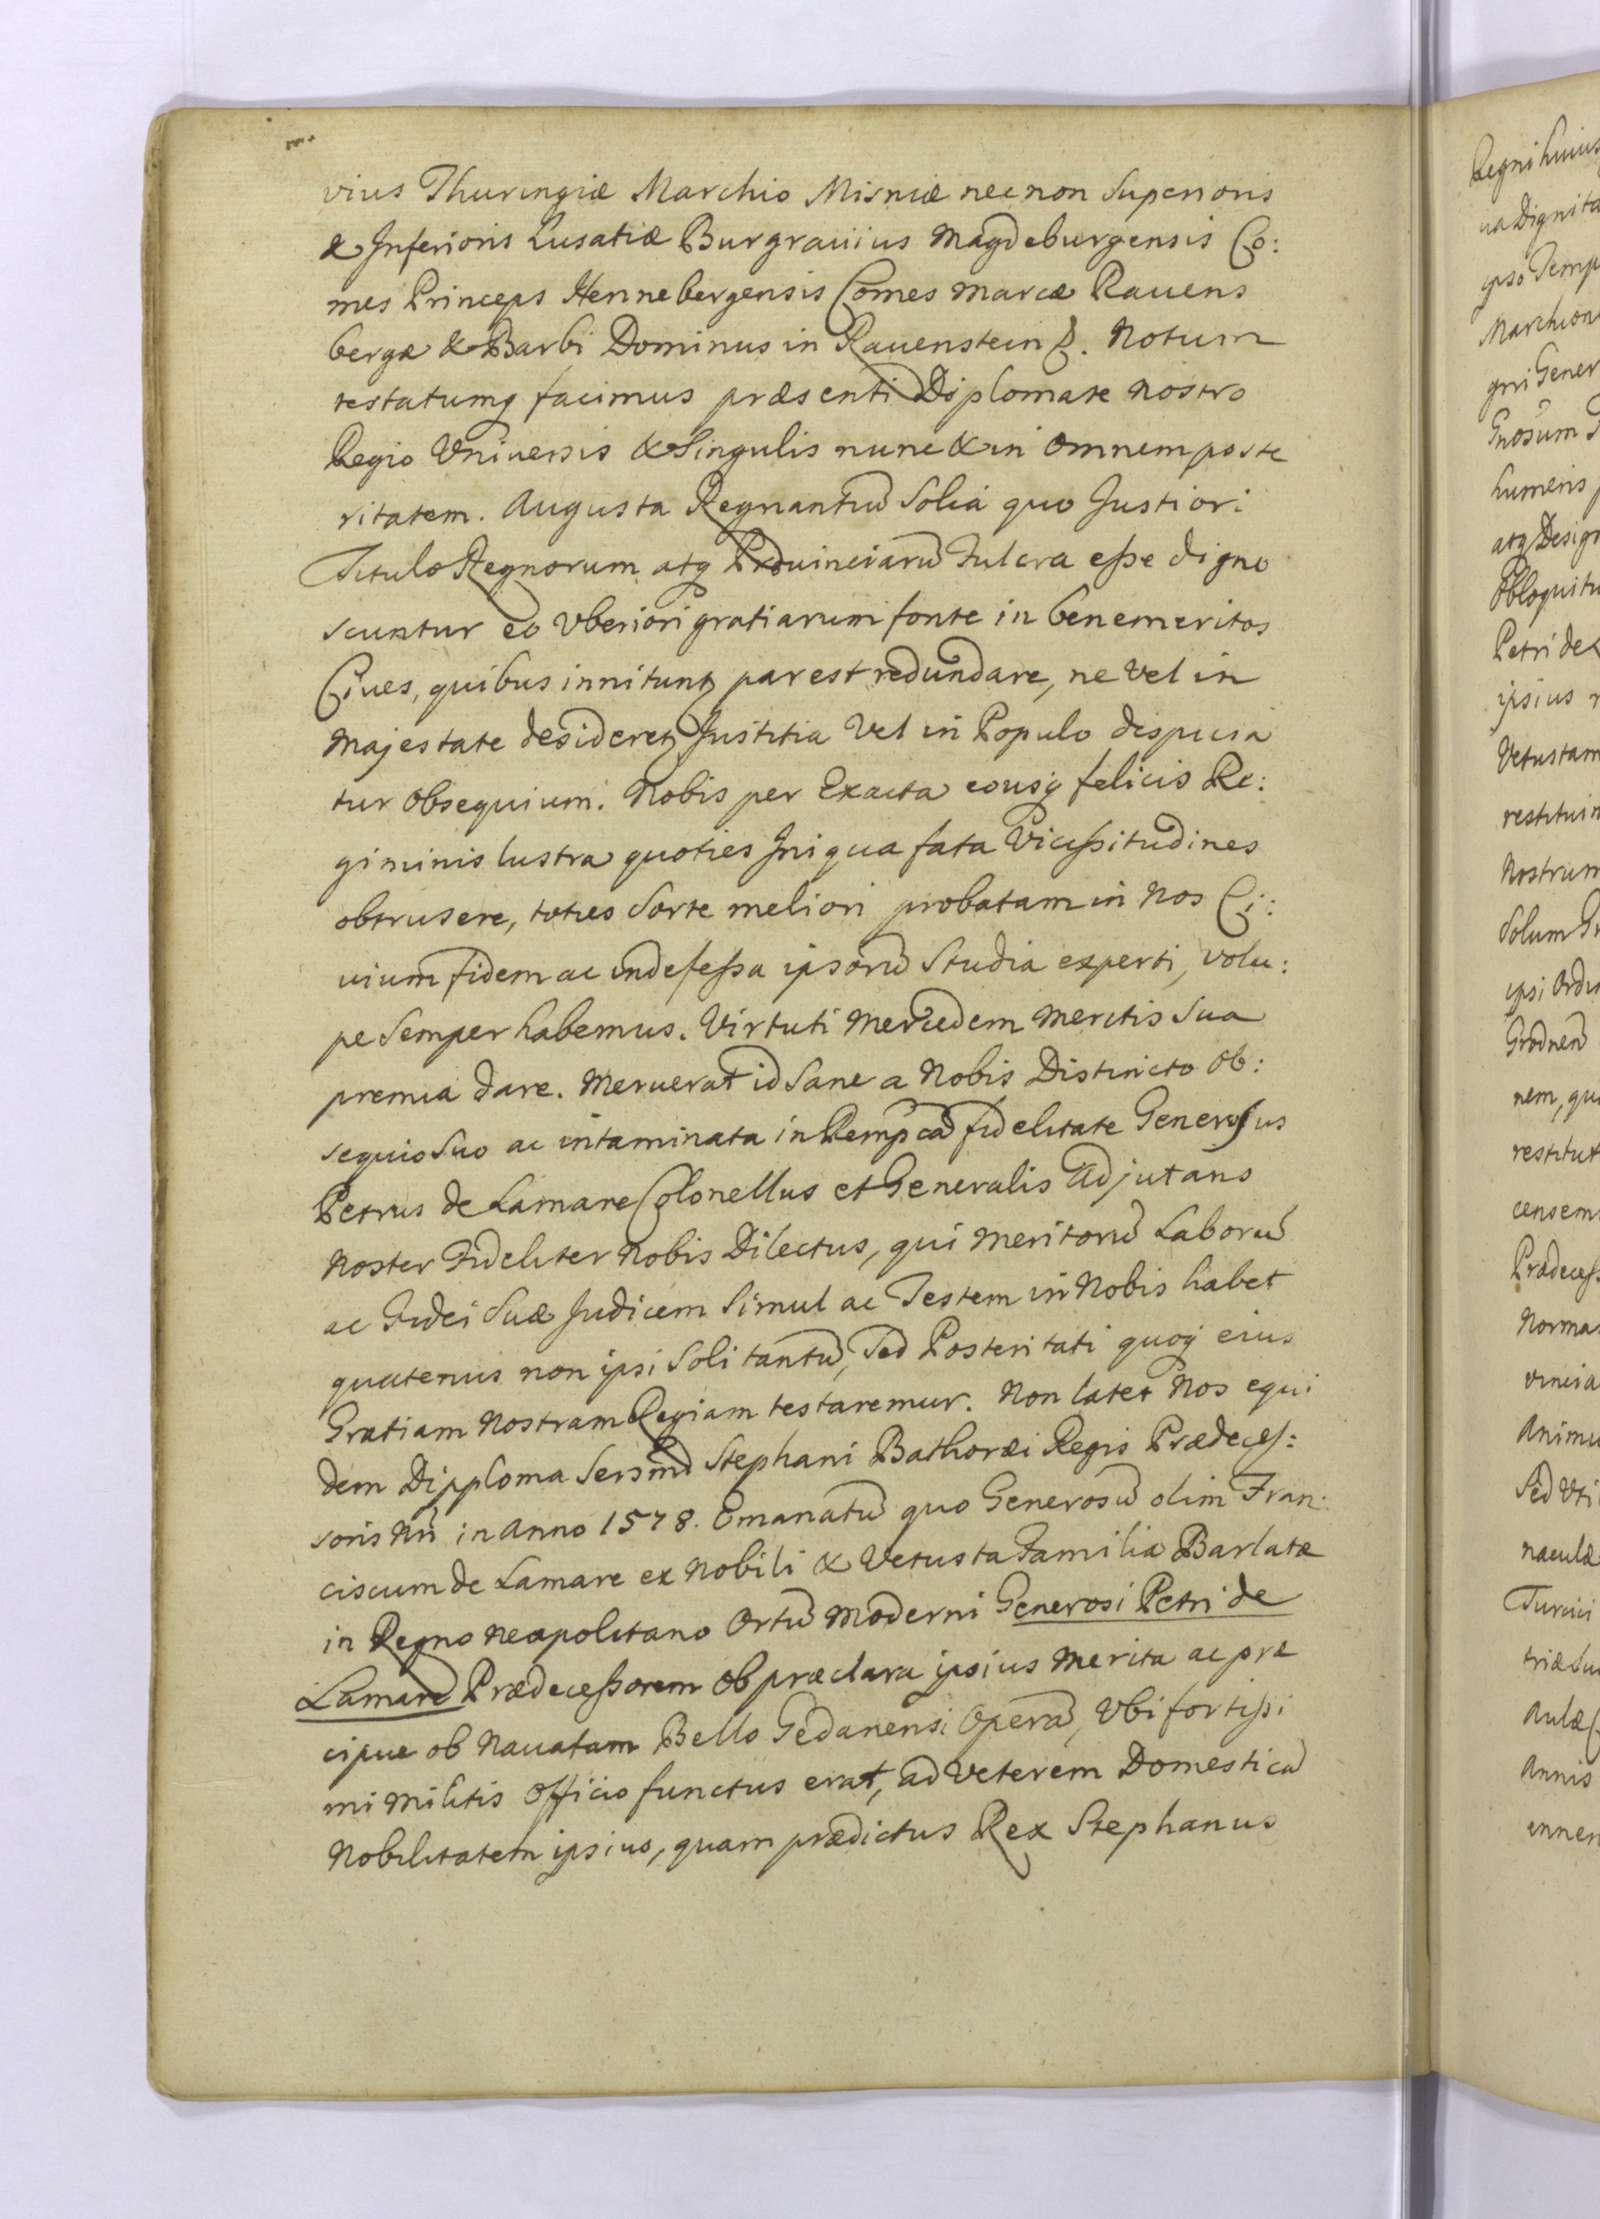 vius Thuringiæ Marchio Misniæ necnon Superioris
& Inferioris Lusatiæ Burgravius Magdeburgensis Co:
mes Princeps Hennebergensis Comes Marcæ Rauens
bergæ & Barbi Dominus in Rauenstein &. Notum
testatumq facimus præsenti Diplomate nostro
Regio Vniuersis & Singulis nunc & in omnem poste
ritatem. Augusta Regnantū Solia quo Justiori
Titulo Regnorum atq Prouinciarū Fulcra esse digno
scuntur eo Vberiori gratiarum fonte in benemeritos
Ciues, quibus innitunt par est redundare, ne vel in
Majestate desideret Justitia Vel in Populo despicia
tur Obsequium. Nobis per Exacta eousq felicis Re:
giminis lustra quoties Iniqua fata Vicissitudines
obtrusere, toties Sorte meliori probatam in Nos Ci:
uium fidem ac indefessa ipsorū Studia experti, volu:
pe Semper habemus. Virtuti Mercedem Meritis Sua
premia dare. Meruerat id Sane a Nobis Distincto Ob:
sequio Suo ac intaminata in Rempcā fidelitate Generosus
Petrus de Lamare Colonellus et Generalis Adjutans
Noster Fideliter Nobis Dilectus, qui Meritorū Laborū
ac Fidei Suæ Judicem Simul ac Testem in Nobis habet
quatenus non ipsi Soli tantū, Sed Posteritati quoq eius
Gratiam Nostram Regiam testaremur. Non latet Nos equi
dem Dipploma Sersmi Stephani Bathoræi Regis Prædeces:
soris Nri in Anno 1578. Emanatū quo Generosū olim Fran:
ciscum de Lamare ex Nobili & Vetusta Familia Barlatæ
in Regno Neapolitano Ortū Moderni Generosi Petri de
Lamare Prædecessorem Ob præclara ipsius Merita ac præ
cipue ob Nauatam Bello Gedanensi Operā, Vbi fortissi
mi Militis Officio functus erat, ad Veterem Domesticā
Nobilitatem ipsius, quam prædictus Rex Stephanus
Regni huius
ua Dignita
ipso Temp
Marchion
gni Gener
Gnosum
humeris
atq Desig
Obloquitu
Petri de
ipsius
Vetustam
restituim
Nostrum
Solum
ipsi Ordi
Grodnen
nem, qu
restitut
censem
Prædecess
Norma
vincia
Animu
Sed Vti
naculæ
Turcici
triæ Su
Aulæ
Annis
innen